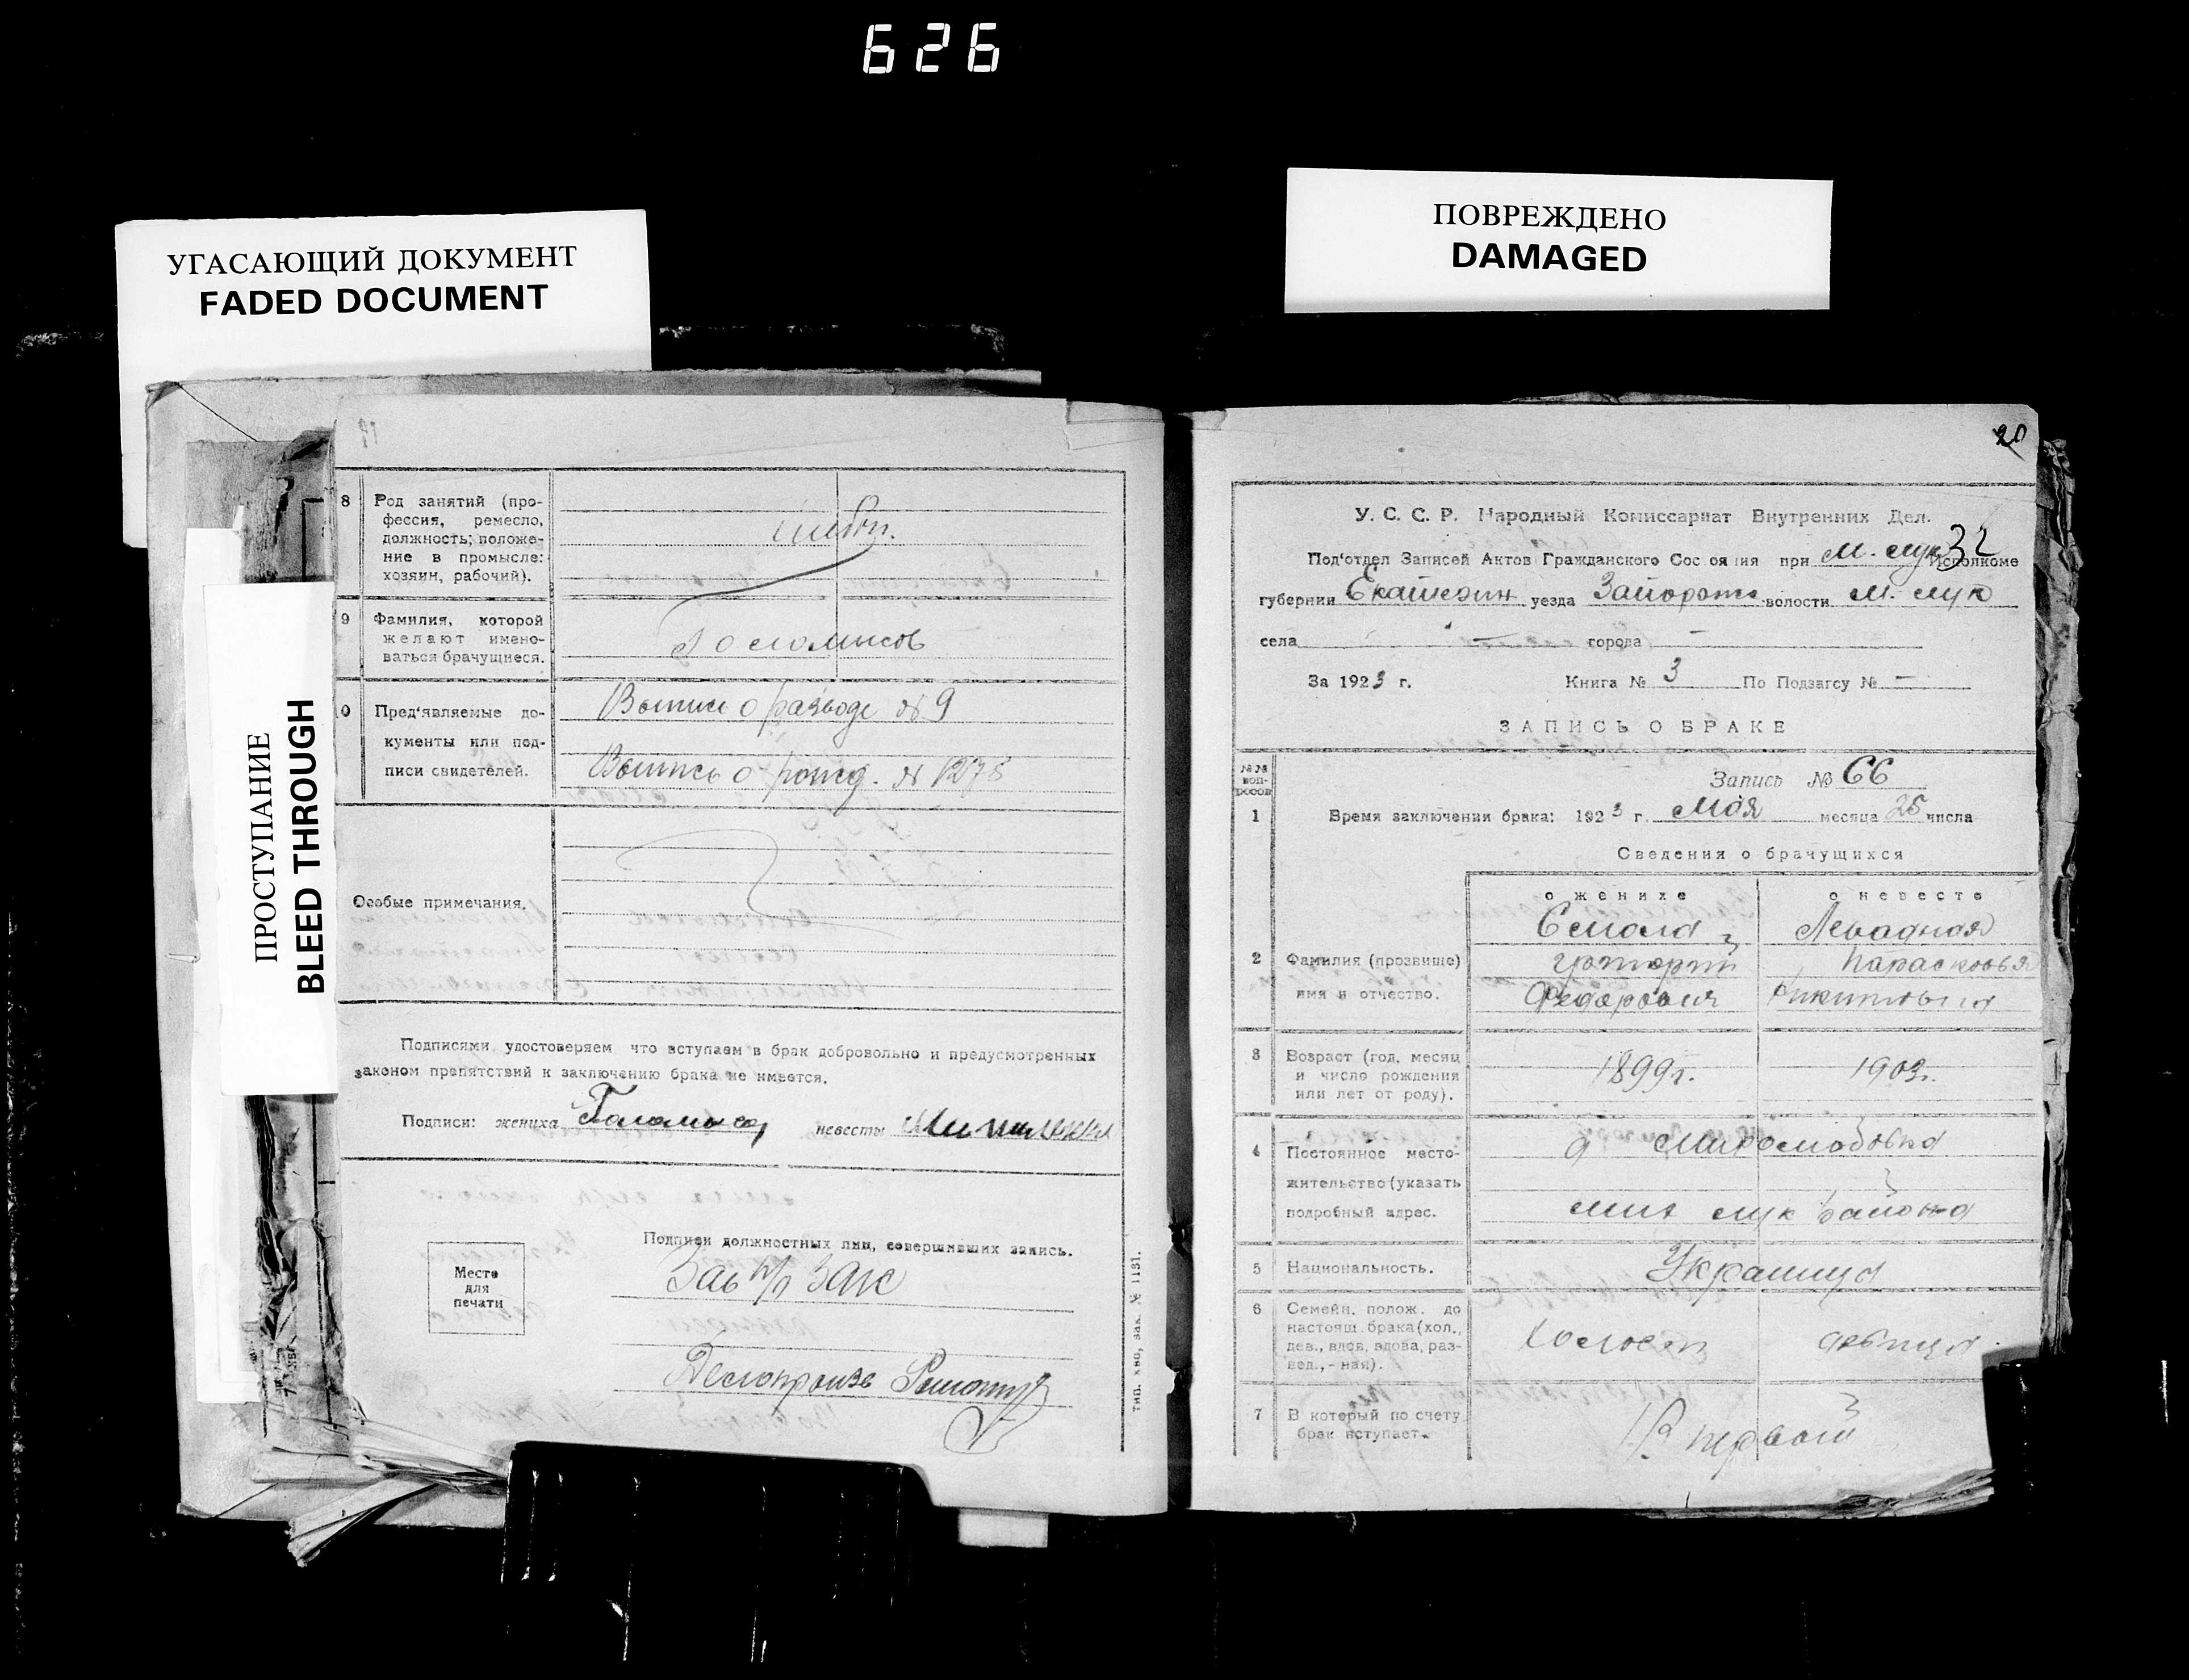 626
УГАСАЮЩИЙ ДОКУМЕНТ
FADED DOCUMENT
ПОВРЕЖДЕНО
DAMAGED
ПРОСТУПАНИЕ
BLEED THROUGH
8 Род занятий (про-
фессия, ремесло,
должность; положе-
ние в промысле:
хозяин, рабочий).
9 Фамилия, которой
желают имено-
ваться брачущиеся.
0 Пред'являемые до-
кументы или под-
писи свидетелей.
Выпись о разводе № 9
Выпись о рожд. № 1278
Особые примечания.
Подписями удостоверяем что вступаем в брак добровольно и предусмотренных
законом препятствий к заключению брака не имеется.
Подписи: жениха невесты
Подписи должностных лиц, совершивших запись.
Место
для
печати
Зав п/п Загс
Делопроизв
тип. кво, зак. № 1131.
20
У. С. С. Р. Народный Комиссариат Внутренних Дел.
32
Под'отдел Записей Актов Гражданского Сос оя ия при М. Лук Исполкоме
губернии Екатерин уезда Запорож волости М. Лук
села — города —
За 1923 г. Книга № 3 По Подзагсу № —
ЗАПИСЬ О БРАКЕ
№№ воп-росов
Запись № 66
1 Время заключения брака: 1923 г. Мая месяца 25 числа
Сведения о брачущихся
о женихе о невесте
2 Фамилия (прозвище)
имя и отчество.
Левадная
Григорий Парасковья
Федорович Никитовна
3 Возраст (год, месяц
и число рождения
или лет от роду).
1899г. 1903г.
4 Постоянное место-
жительство (указать
подробный адрес.
д Миролюбовка
Мих Лук района
5 Национальность. Украинца
6 Семейн. полож. до
настоящ. брака (хол.,
дев., вдов, вдова, раз-
вед.,-ная).
Холост девица
7 В который по счету
брак вступает.
В первый